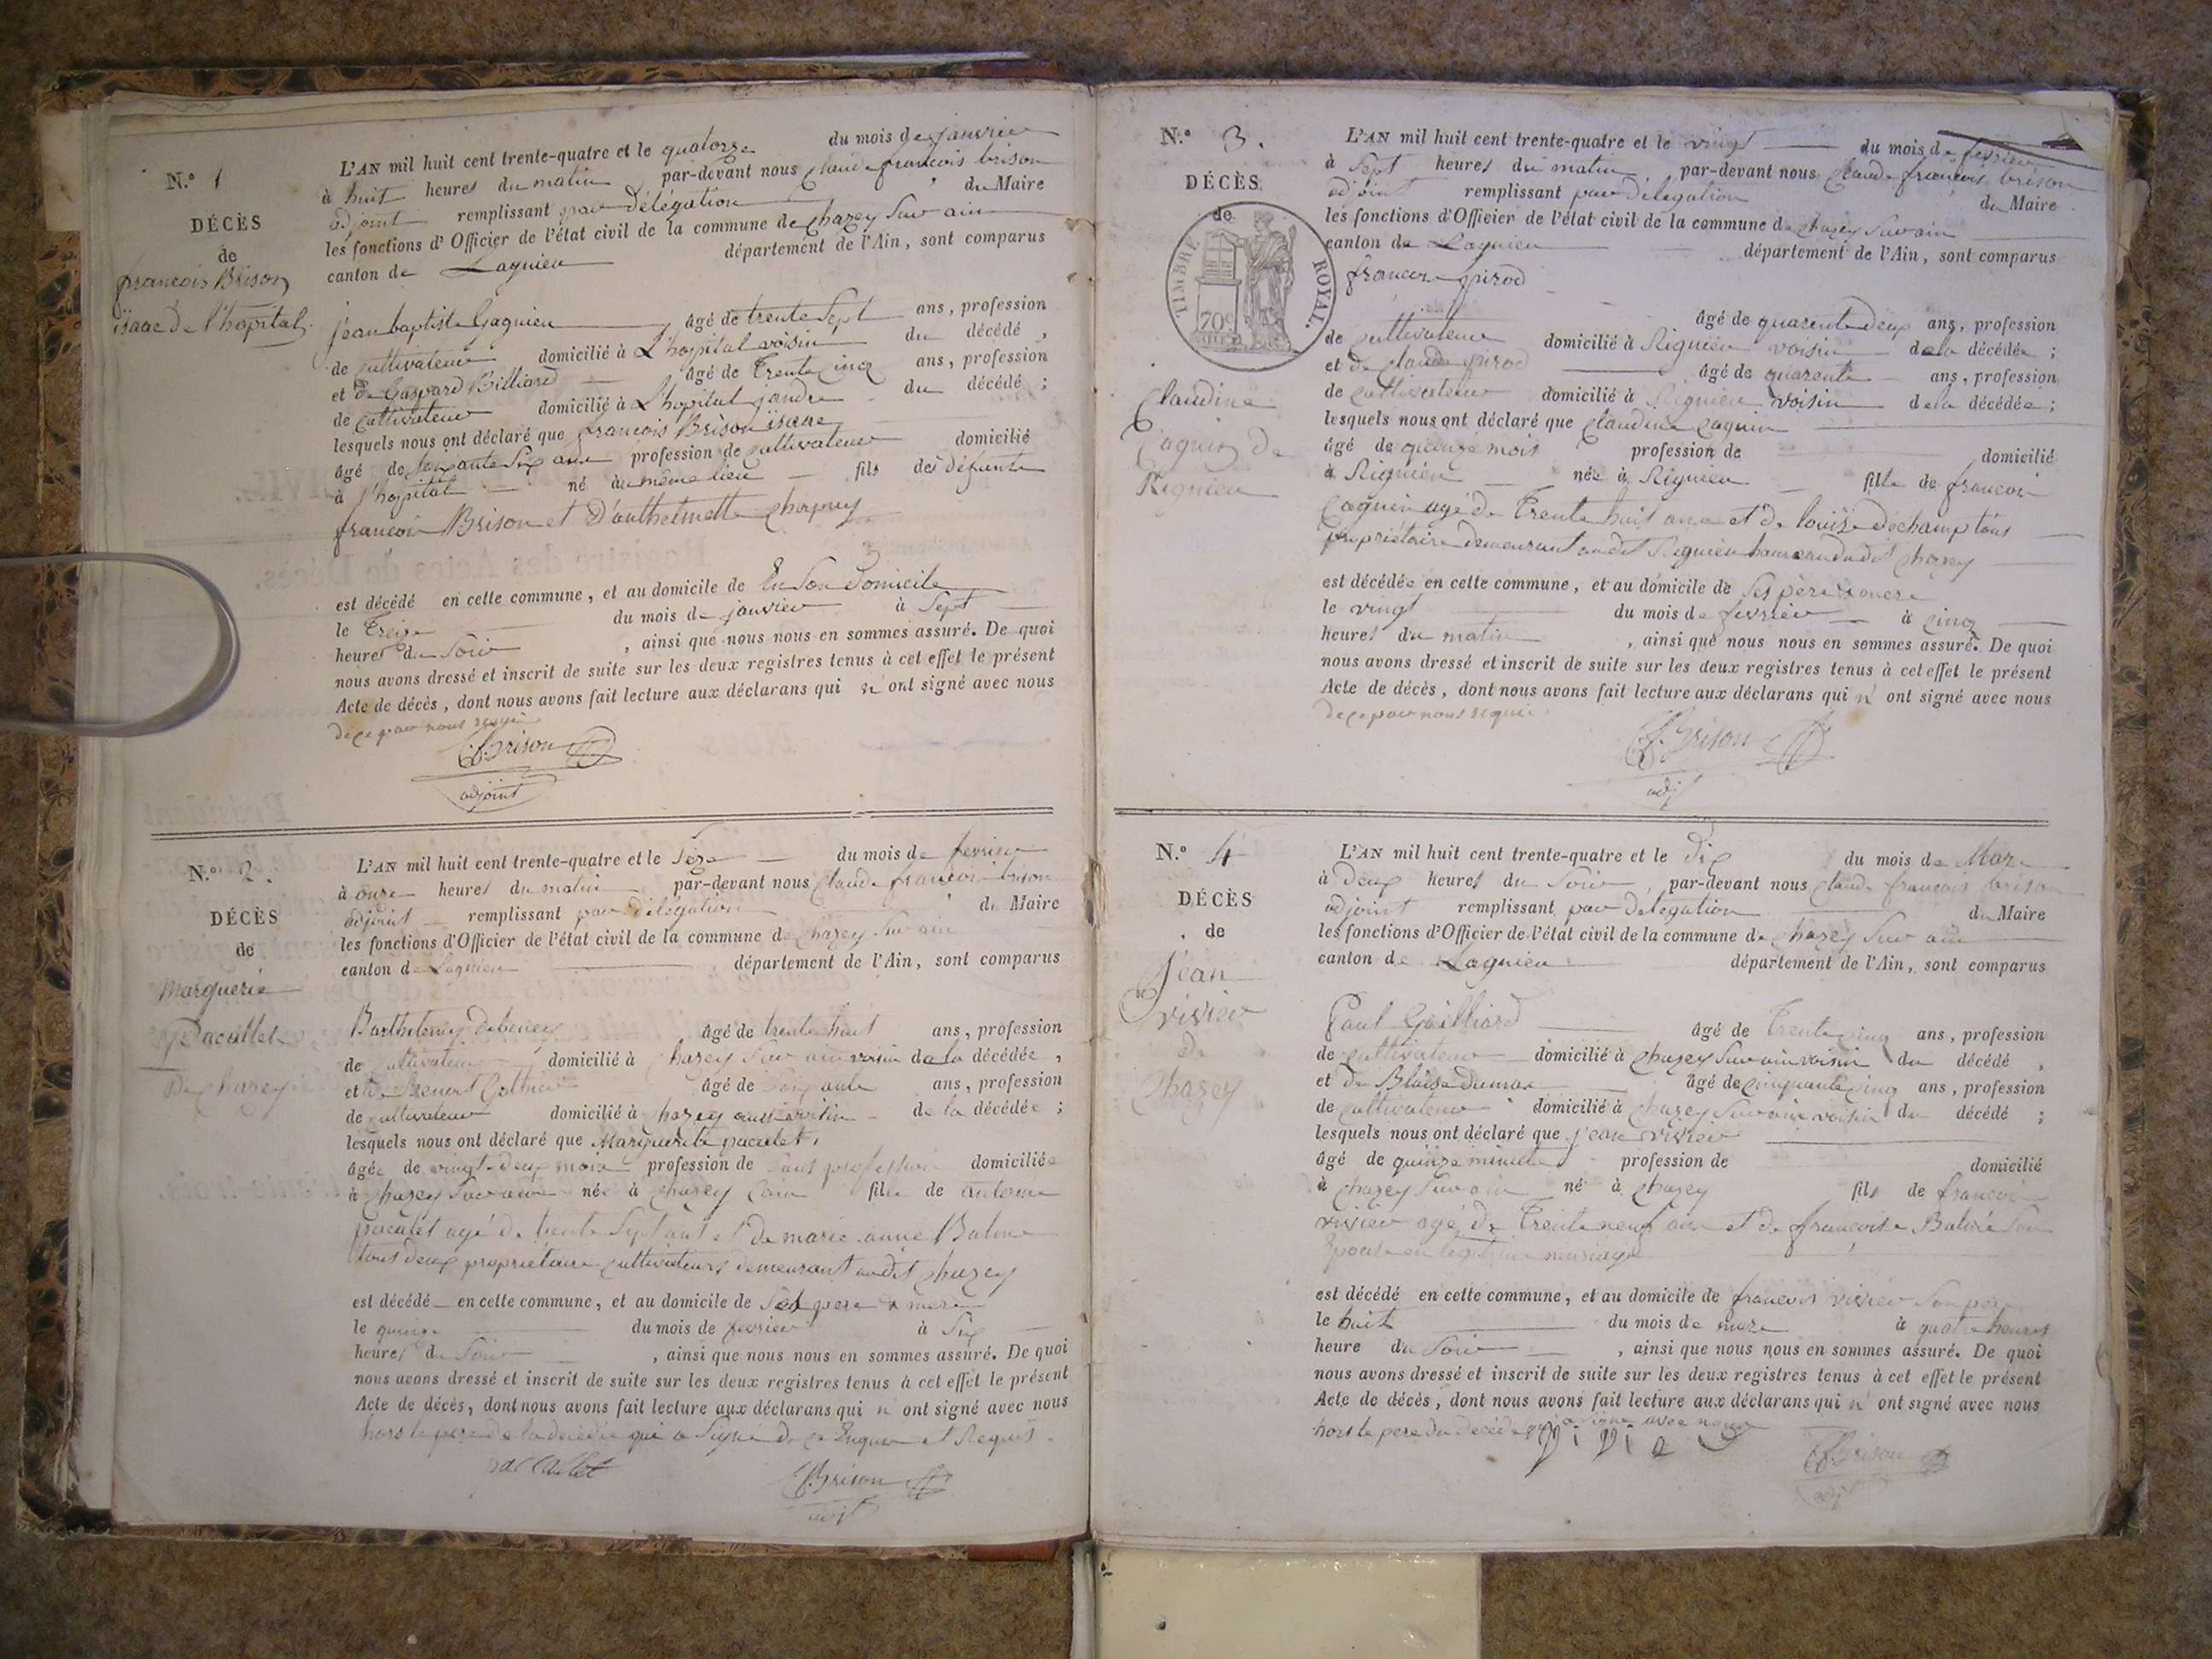 N.° 1
DÉCÈS
de
françois Brison
isaac de l'hopital.
L'AN mil huit cent trente-quatre et le quatorze du mois de janvier
à huit heures du matin par-devant nous claude françois brison
adjoint remplissant par délégation du Maire
les fonctions d'Officier de l'état civil de la commune de chazey sur ain
canton de Lagnieu département de l'Ain, sont comparus
jean baptiste Gagnieu âgé de trente sept ans, profession
de cultivateur domicilié à L'hopital voisin du décédé,
et de Gaspard Billiard âgé de trente cinq ans, profession
de cultivateur domicilié à L'hopital jandre du décédé;
lesquels nous ont déclaré que françois Brison isaac
âgé de soixante six ans profession de cultivateur domicilié
à l'hopital né au même lieu fils des défunts
françois Brison et d'anthelmette
est décédé en cette commune, et au domicile de En son domicile
le treize du mois de janvier à sept
heures du soir, ainsi que nous nous en sommes assuré. De quoi
nous avons dressé et inscrit de suite sur les deux registres tenus à cet effet le présent
Acte de décès, dont nous avons fait lecture aux déclarans qui n'ont signé avec nous
de ce par nous requis
C.f. Brison
adjoint
N.° 2.
DÉCÈS
de
Marguerie
Pacallet
De chazey
L'AN mil huit cent trente-quatre et le seze du mois de fevrier
à onze heures du matin par-devant nous claude françois brison
adjoint remplissant par délégation du Maire
les fonctions d'Officier de l'état civil de la commune de chazey sur ain
canton de Lagnieu département de l'Ain, sont comparus
Barthelemy âgé de trente huit ans, profession
de cultivateur domicilié à chazey sur ain voisin de la décédée,
et de âgé de soixante ans, profession
de cultivateur domicilié à chazey aussi voisin de la décédée;
lesquels nous ont déclaré que Marguerite pacalet,
âgée de vingt-deux mois profession de sans profession domiciliée
à chazey sur ain née à chazey fille de antoine
pacalet agé de trente sept ans et de marie anne
tous deux propriétaire cultivateurs demeurant audit chazey
est décédé en cette commune, et au domicile de ses pere & mere
le quinze du mois de fevrier à six
heures du soir, ainsi que nous nous en sommes assuré. De quoi
nous avons dressé et inscrit de suite sur les deux registres tenus à cet effet le présent
Acte de décès, dont nous avons fait lecture aux déclarans qui n'ont signé avec nous
hors le pere de la décédée qui a signé de ce Enquis et Requis.
pacallet C.f. Brison
adjt
N.° 3.
DÉCÈS
de
TIMBRE ROYAL.
70c
Claudine
Caguin de
Rignieu
L'AN mil huit cent trente-quatre et le vingt du mois de fevrier
à sept heures du matin, par-devant nous Claude françois brison
adjoint remplissant par délégation du Maire
les fonctions d'Officier de l'état civil de la commune de chazey sur ain
canton de Lagnieu département de l'Ain, sont comparus
françois pirod
âgé de quarente deux ans, profession
de cultivateur domicilié à Rignieu voisin de la décédée;
et de claude pirod âgé de quarente ans, profession
de cultivateur domicilié à Rignieu voisin de la décédée;
lesquels nous ont déclaré que claudine caguin
âgé de quinze mois profession de domicilié
à Rignieu née à Rignieu fille de françois
Caguin agé de trente huit ans et de louise dechamp tous
propriétaire demeurant audit Rignieu hameau dudit chazey
est décédée en cette commune, et au domicile de ses père & mere
le vingt du mois de fevrier à cinq
heures du matin, ainsi que nous nous en sommes assuré. De quoi
nous avons dressé et inscrit de suite sur les deux registres tenus à cet effet le présent
Acte de décès, dont nous avons fait lecture aux déclarans qui n'ont signé avec nous
de ce par nous requis.
C.f. Brison
adjt
N.° 4
DÉCÈS
de
Jean
vivier
de
Chazey
L'AN mil huit cent trente-quatre et le dix du mois de Mars
à deux heures du soir, par-devant nous claude françois brison
adjoint remplissant par délégation du Maire
les fonctions d'Officier de l'état civil de la commune de chazey sur ain
canton de Lagnieu département de l'Ain, sont comparus
Paul Gailliard âgé de trente cinq ans, profession
de cultivateur domicilié à chazey sur ain voisin du décédé,
et de Blaise dumas âgé de cinquante cinq ans, profession
de cultivateur domicilié à chazey sur ain voisin du décédé;
lesquels nous ont déclaré que jean vivier
âgé de quinze minutes profession de domicilié
à chazey sur ain né à chazey fils de françois
vivier agé de trente neuf ans et de françoise son
Epouse en légitime mariage
est décédé en cette commune, et au domicile de françois vivier son pere
le huit du mois de mars à quatre heures
heure du soir, ainsi que nous nous en sommes assuré. De quoi
nous avons dressé et inscrit de suite sur les deux registres tenus à cet effet le présent
Acte de décès, dont nous avons fait lecture aux déclarans qui n'ont signé avec nous
hors le pere du décédé qui a signé avec nous
C.f. Brison
adjt